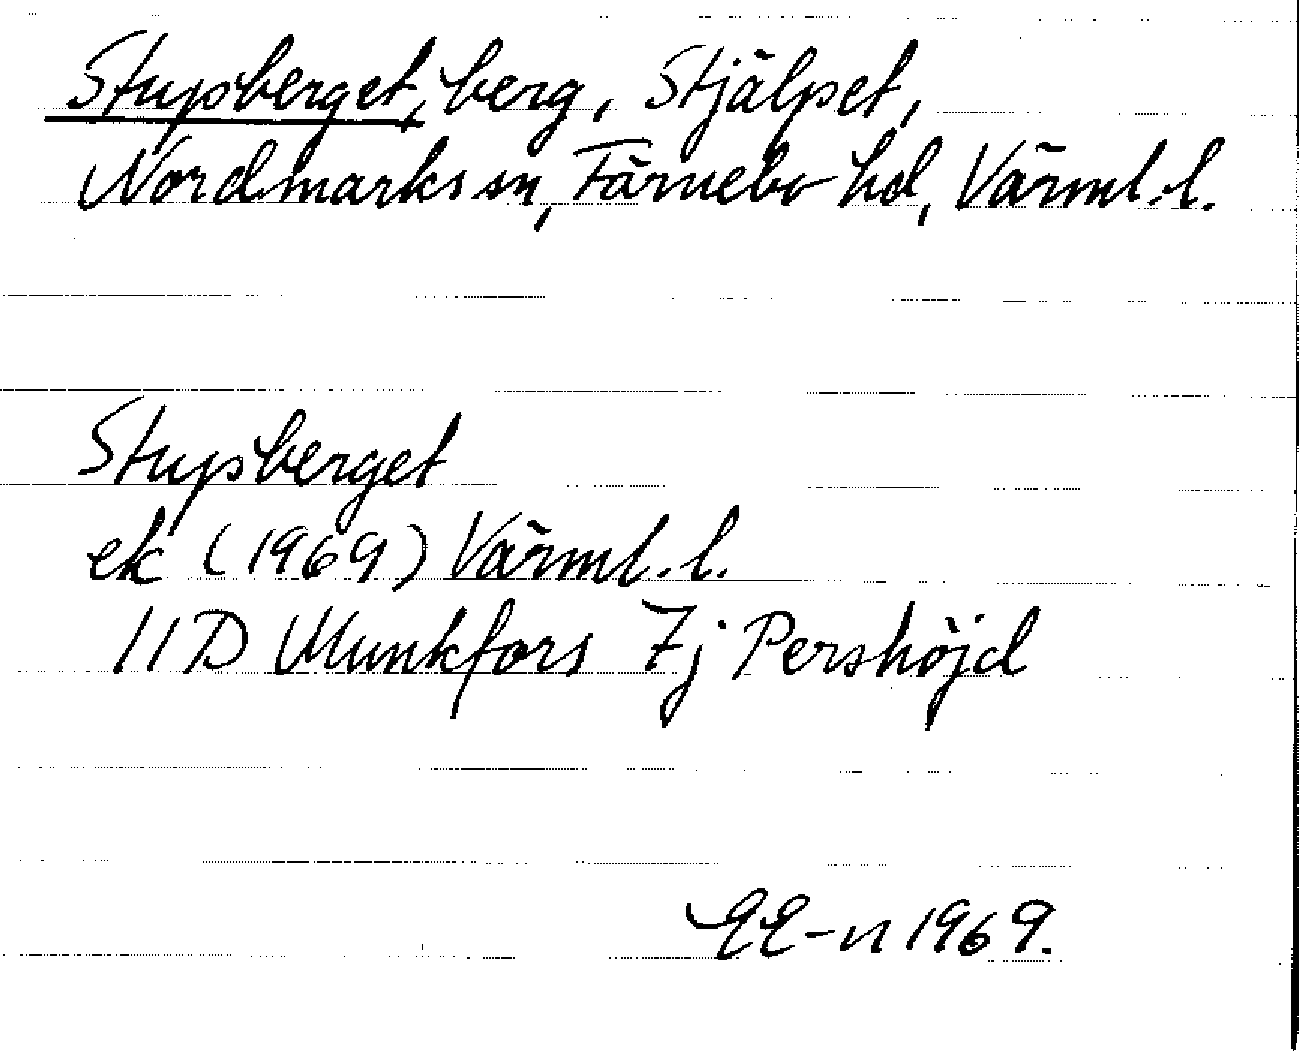 Stupsberget, berg, Stjälpet,
Nordmarks sn, Färnebo hd, Värml. l.
Stupsberget
ek (1969) Värml. l.
11D Munkfors 7j Pershöjd
EE-n 1969.